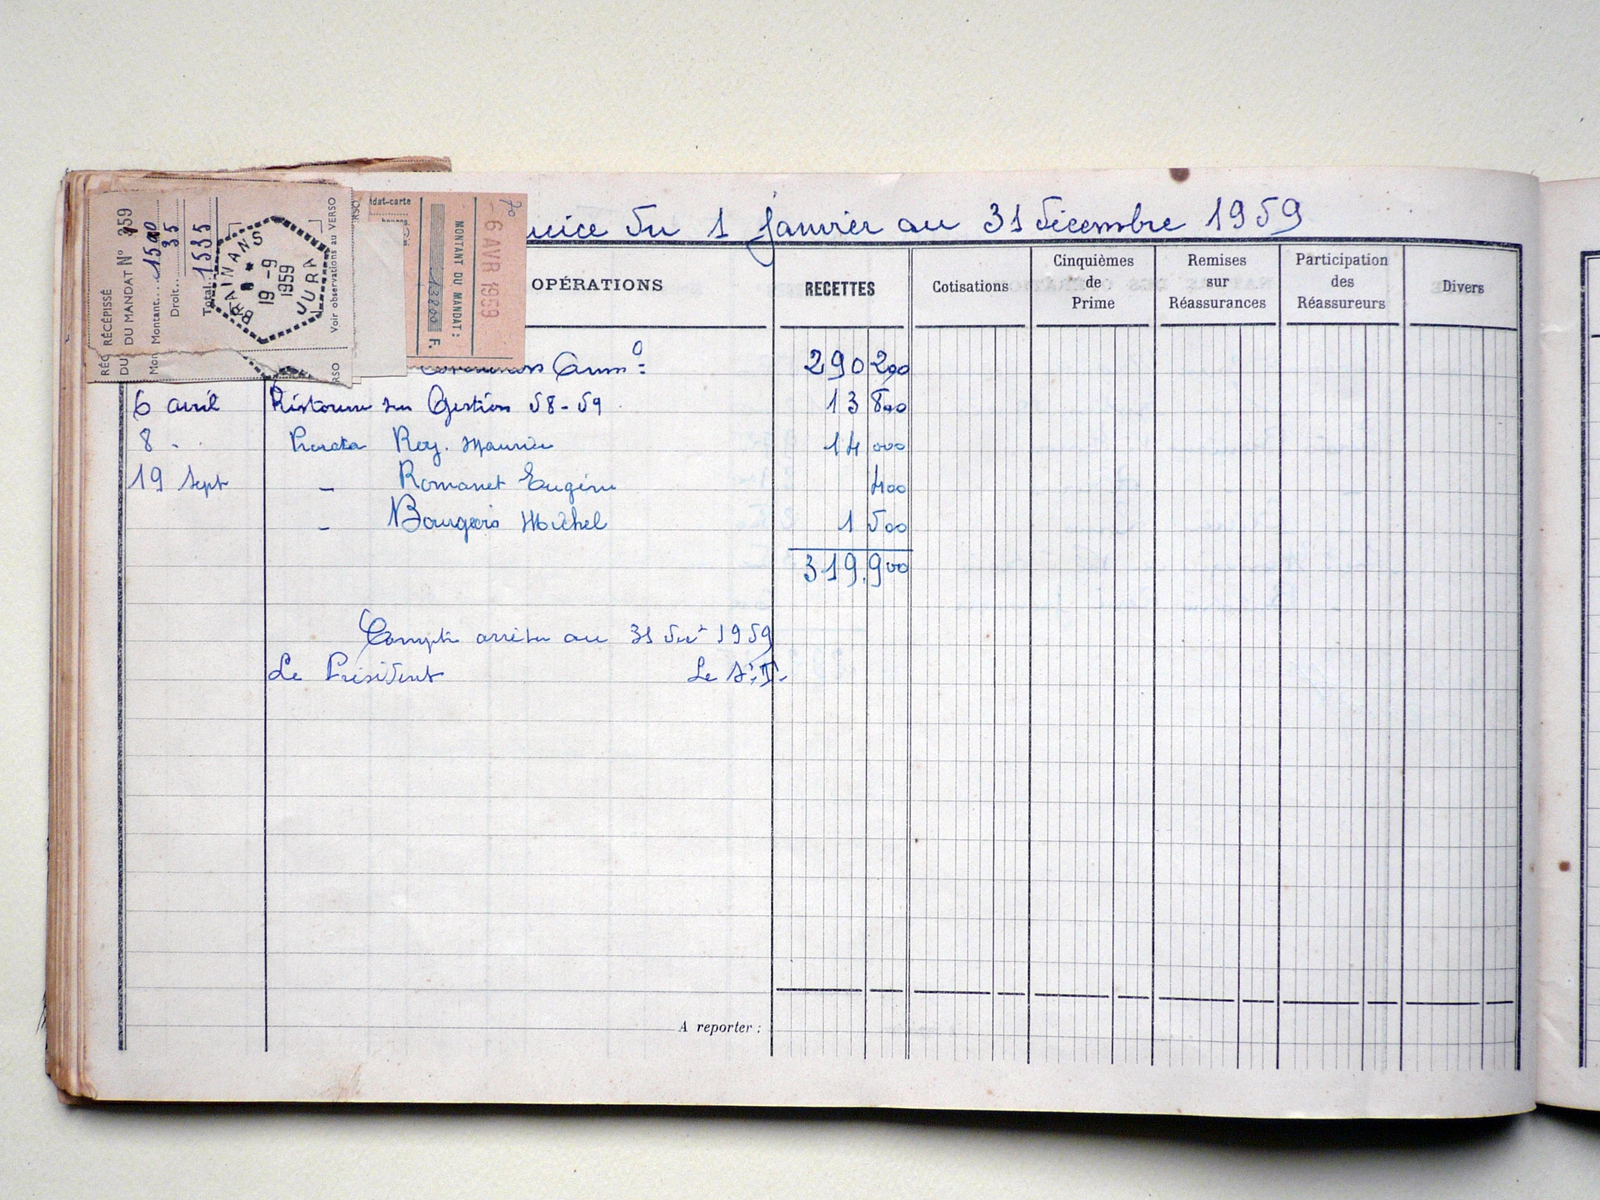 RÉCÉPISSÉ
DU MANDAT N° 959
Montant... 1500
Droit... 35
Total. 1535
BRAINANS
19-9
1959
JURA
Voir observations au VERSO
RÉC
DU
Mon
VERSO
RSO
dat-carte
MONTANT DU MANDAT:
13800 F.
- 6 AVR 1959
du 1 janvier au 31 décembre 1959
OPÉRATIONS
RECETTES
Cotisations
Cinquièmes de Prime
Remises sur Réassurances
Participation des Réassureurs
Divers
290 200
6 avril Ristourne sur Gestion 58-59 13 800
8 Prorata Roy. Maurice 14 000
19 Sept - Romanet Eugène 400
- Bourgeois Michel 1 500
319.900
Compte arrêtée au 31 Dec 1959
Le Président Le S.T.
A reporter :